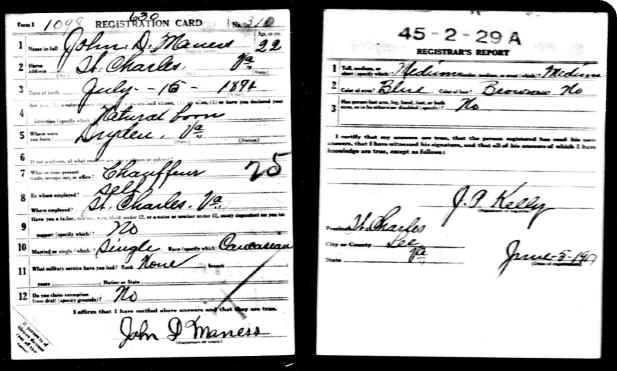 Form 1 1098 630 REGISTRATION CARD No. 310
1 Name in full John D. Maness Age, in yrs. 22
2 Home address St. Charles Va
3 Date of birth July - 15 - 1894
4 Natural born
5 Where were you born? Dryden Va
6
7 What is your present trade, occupation, or office? Chauffeur 25
8 By whom employed? Self
Where employed? St. Charles, Va
9 Have you a father, mother, wife, child under 12, or a sister or brother under 12, solely dependent on you for
support (specify which)? No
10 Married or single (which)? Single Race (specify which)? Caucasian
11 What military service have you had? Rank None branch
years Nation or State
12 Do you claim exemption from draft (specify grounds)? No
I affirm that I have verified above answers and that they are true.
John D Maness
45-2-29 A
REGISTRAR'S REPORT
1 Tall, medium, or short (specify which)? Medium Slender, medium, or stout (which)? Medium
2 Color of eyes? Blue Color of hair? Brown No
3 Has person lost arm, leg, hand, foot, or both eyes, or is he otherwise disabled (specify)? No
I certify that my answers are true, that the person registered has read his own
answers, that I have witnessed his signature, and that all of his answers of which I have
knowledge are true, except as follows:
J. P. Kelly
Precinct St. Charles
City or County Lee
State Va June-5-1917